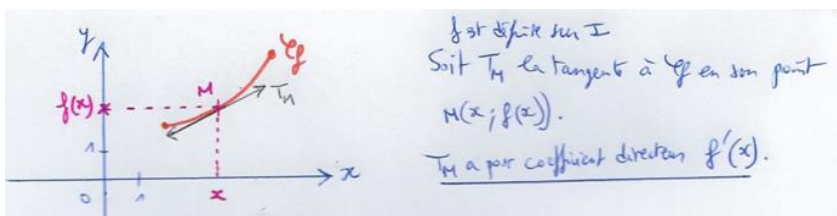 y
𝒞f
f(x)
M
T_M
1
x
0 1 x
f est définie sur I
Soit T_M la tangente à 𝒞f en son point
M(x ; f(x)).
T_M a pour coefficient directeur f'(x).